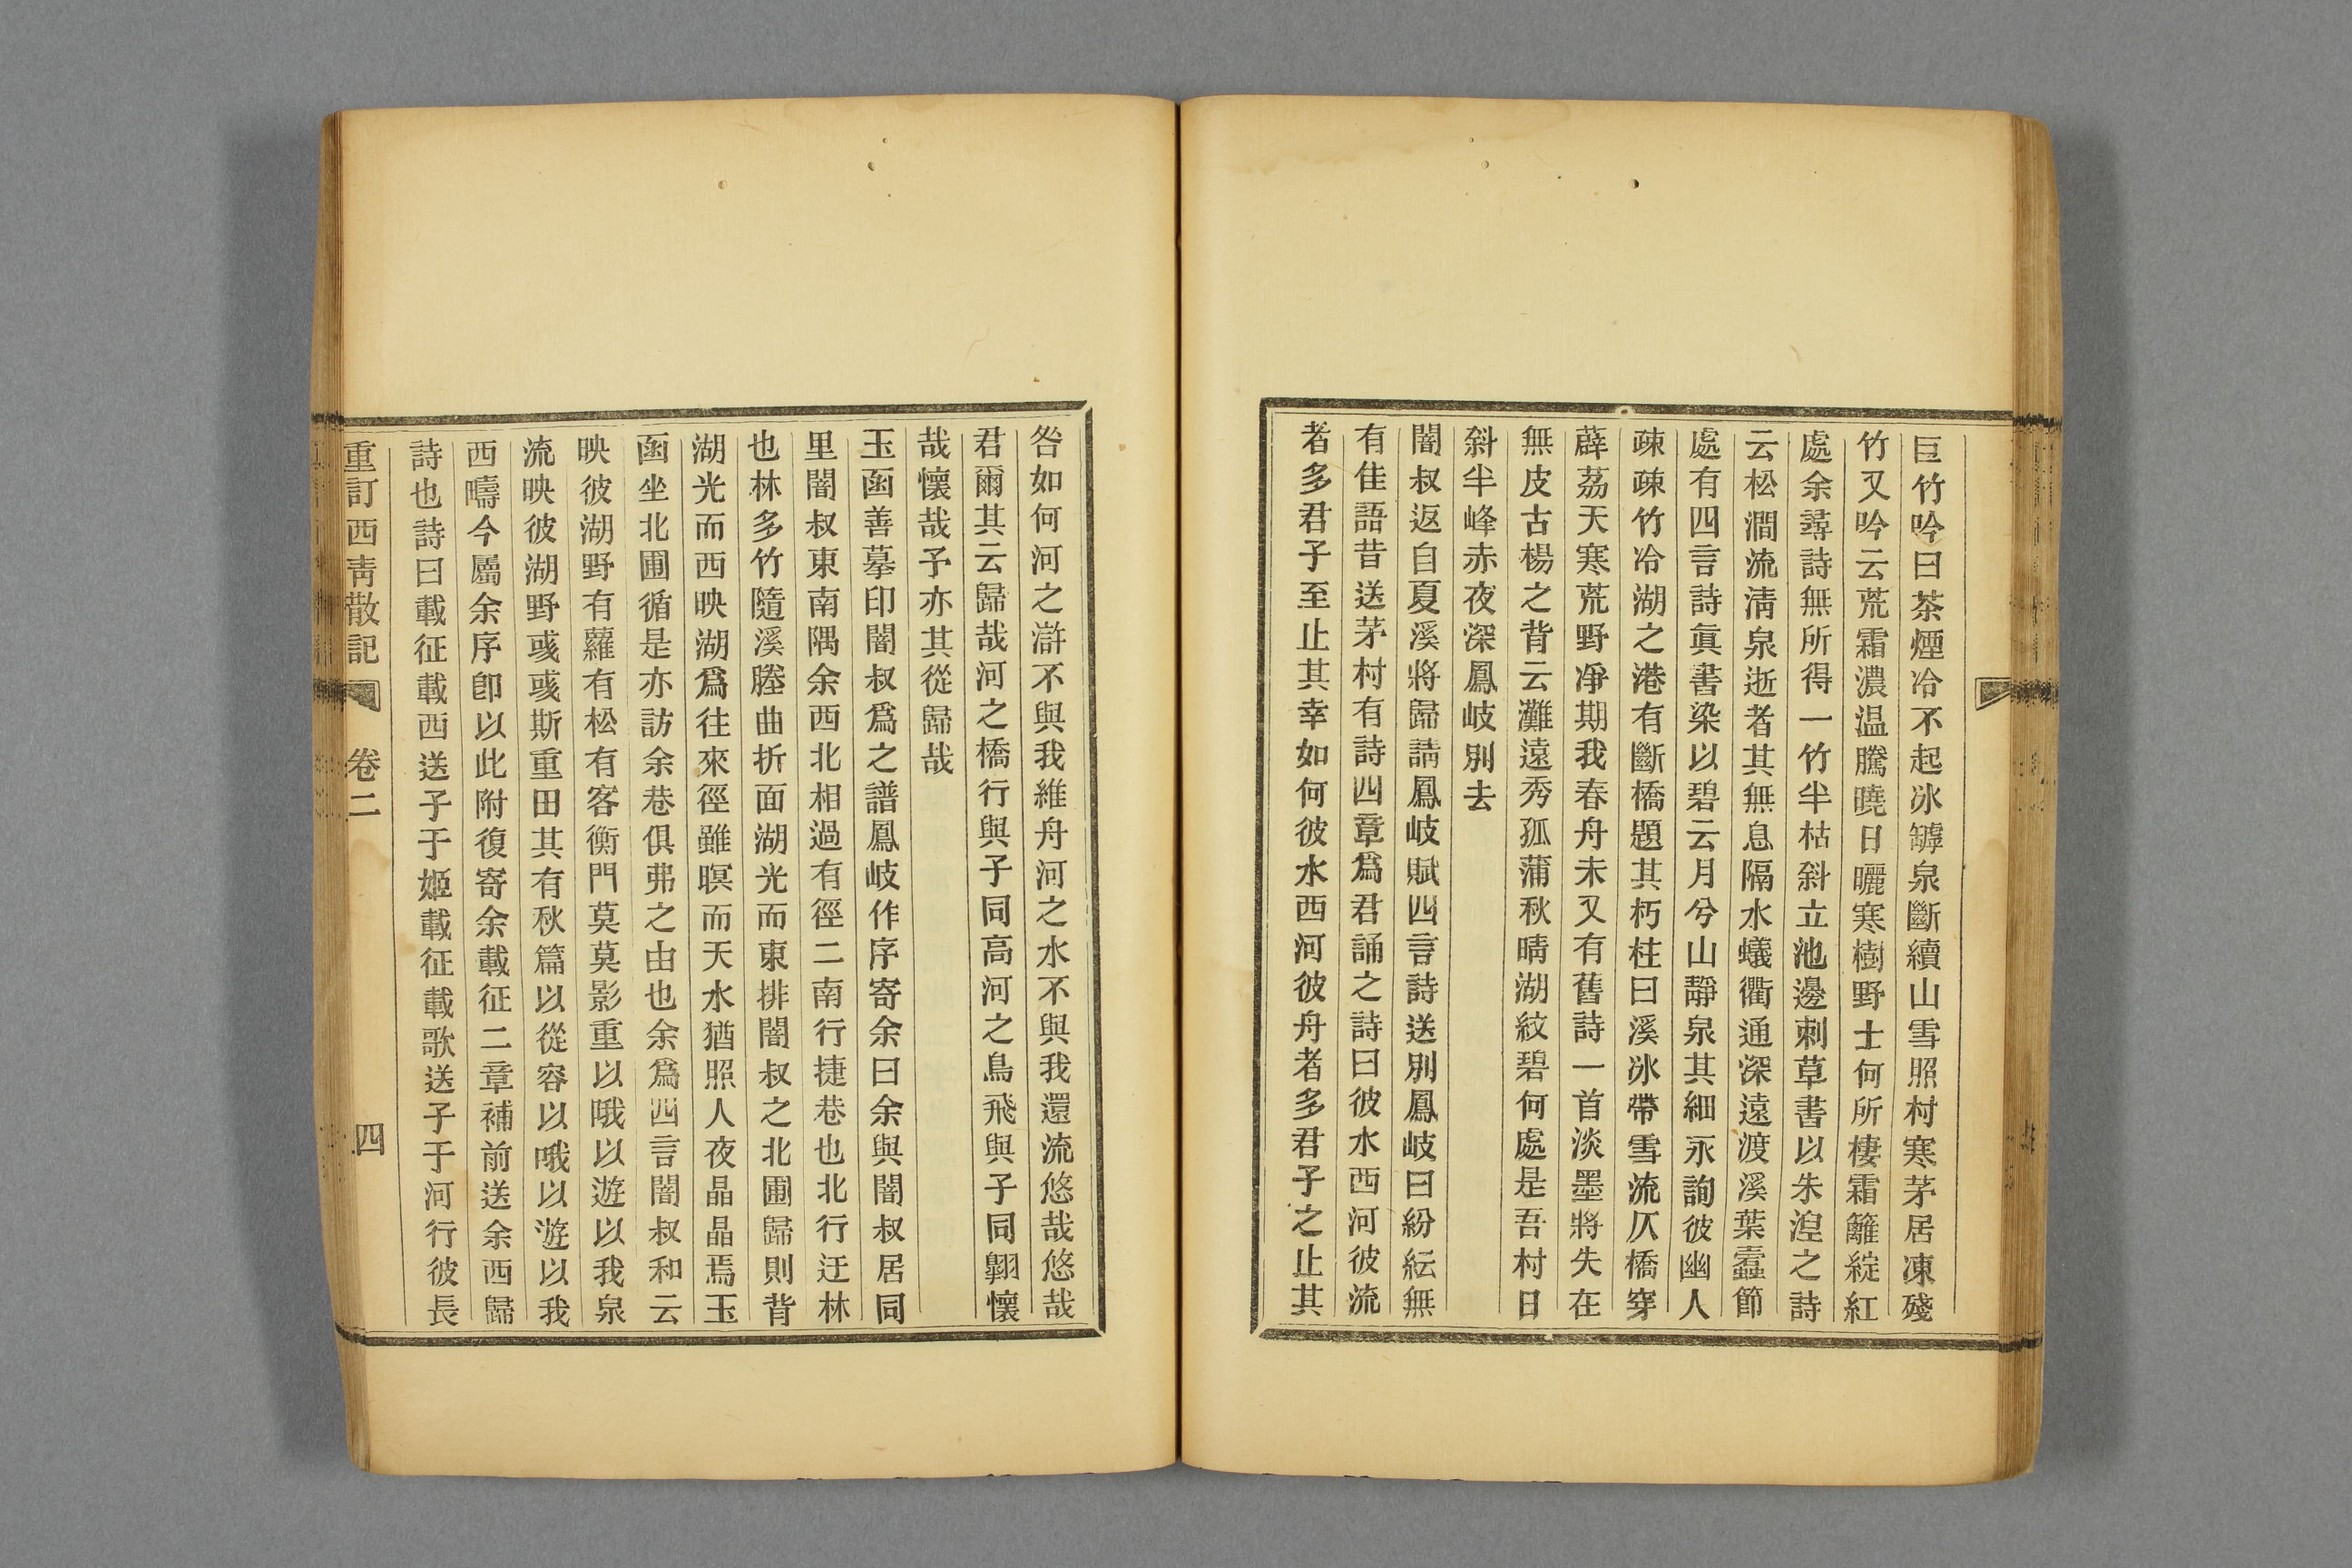 巨竹吟曰茶煙冷不起冰罅泉斷續山雪照村寒茅居凍殘
竹又吟云荒霜濃温騰曉日曬寒樹野士何所棲霜籬綻紅
處余尋詩無所得一竹半枯斜立池邊刺草書以朱湼之詩
云松澗流淸泉逝者其無息隔水蟻衢通深遠渡溪葉蠹節
處有四言詩眞書染以碧云月兮山靜泉其細永詢彼幽人
疎疎竹冷湖之港有斷橋題其朽柱曰溪冰帶雪流仄橋穿
薜荔天寒荒野凈期我春舟未又有舊詩一首淡墨將失在
無皮古楊之背云灘遠秀孤蒲秋晴湖紋碧何處是吾村日
斜半峰赤夜深鳳岐別去
闇叔返自夏溪將歸請鳳岐賦四言詩送別鳳岐曰紛紜無
有佳語昔送茅村有詩四章爲君誦之詩曰彼水西河彼流
者多君子至止其幸如何彼水西河彼舟者多君子之止其
咎如何河之滸不與我維舟河之水不與我還流悠哉悠哉
君爾其云歸哉河之橋行與子同高河之鳥飛與子同翺懷
哉懷哉予亦其從歸哉
玉函善摹印闇叔爲之譜鳳岐作序寄余曰余與闇叔居同
里闇叔東南隅余西北相過有徑二南行捷巷也北行迂林
也林多竹隨溪塍曲折面湖光而東排闇叔之北圃歸則背
湖光而西映湖爲往來徑雖暝而天水猶照人夜晶晶焉玉
函坐北圃循是亦訪余巷俱弗之由也余爲四言闇叔和云
映彼湖野有蘿有松有客衡門莫莫影重以哦以遊以我泉
流映彼湖野彧彧斯重田其有秋篇以從容以哦以遊以我
西疇今屬余序卽以此附復寄余載征二章補前送余西歸
詩也詩曰載征載西送子于姬載征載歌送子于河行彼長
重訂西靑散記 卷二 四